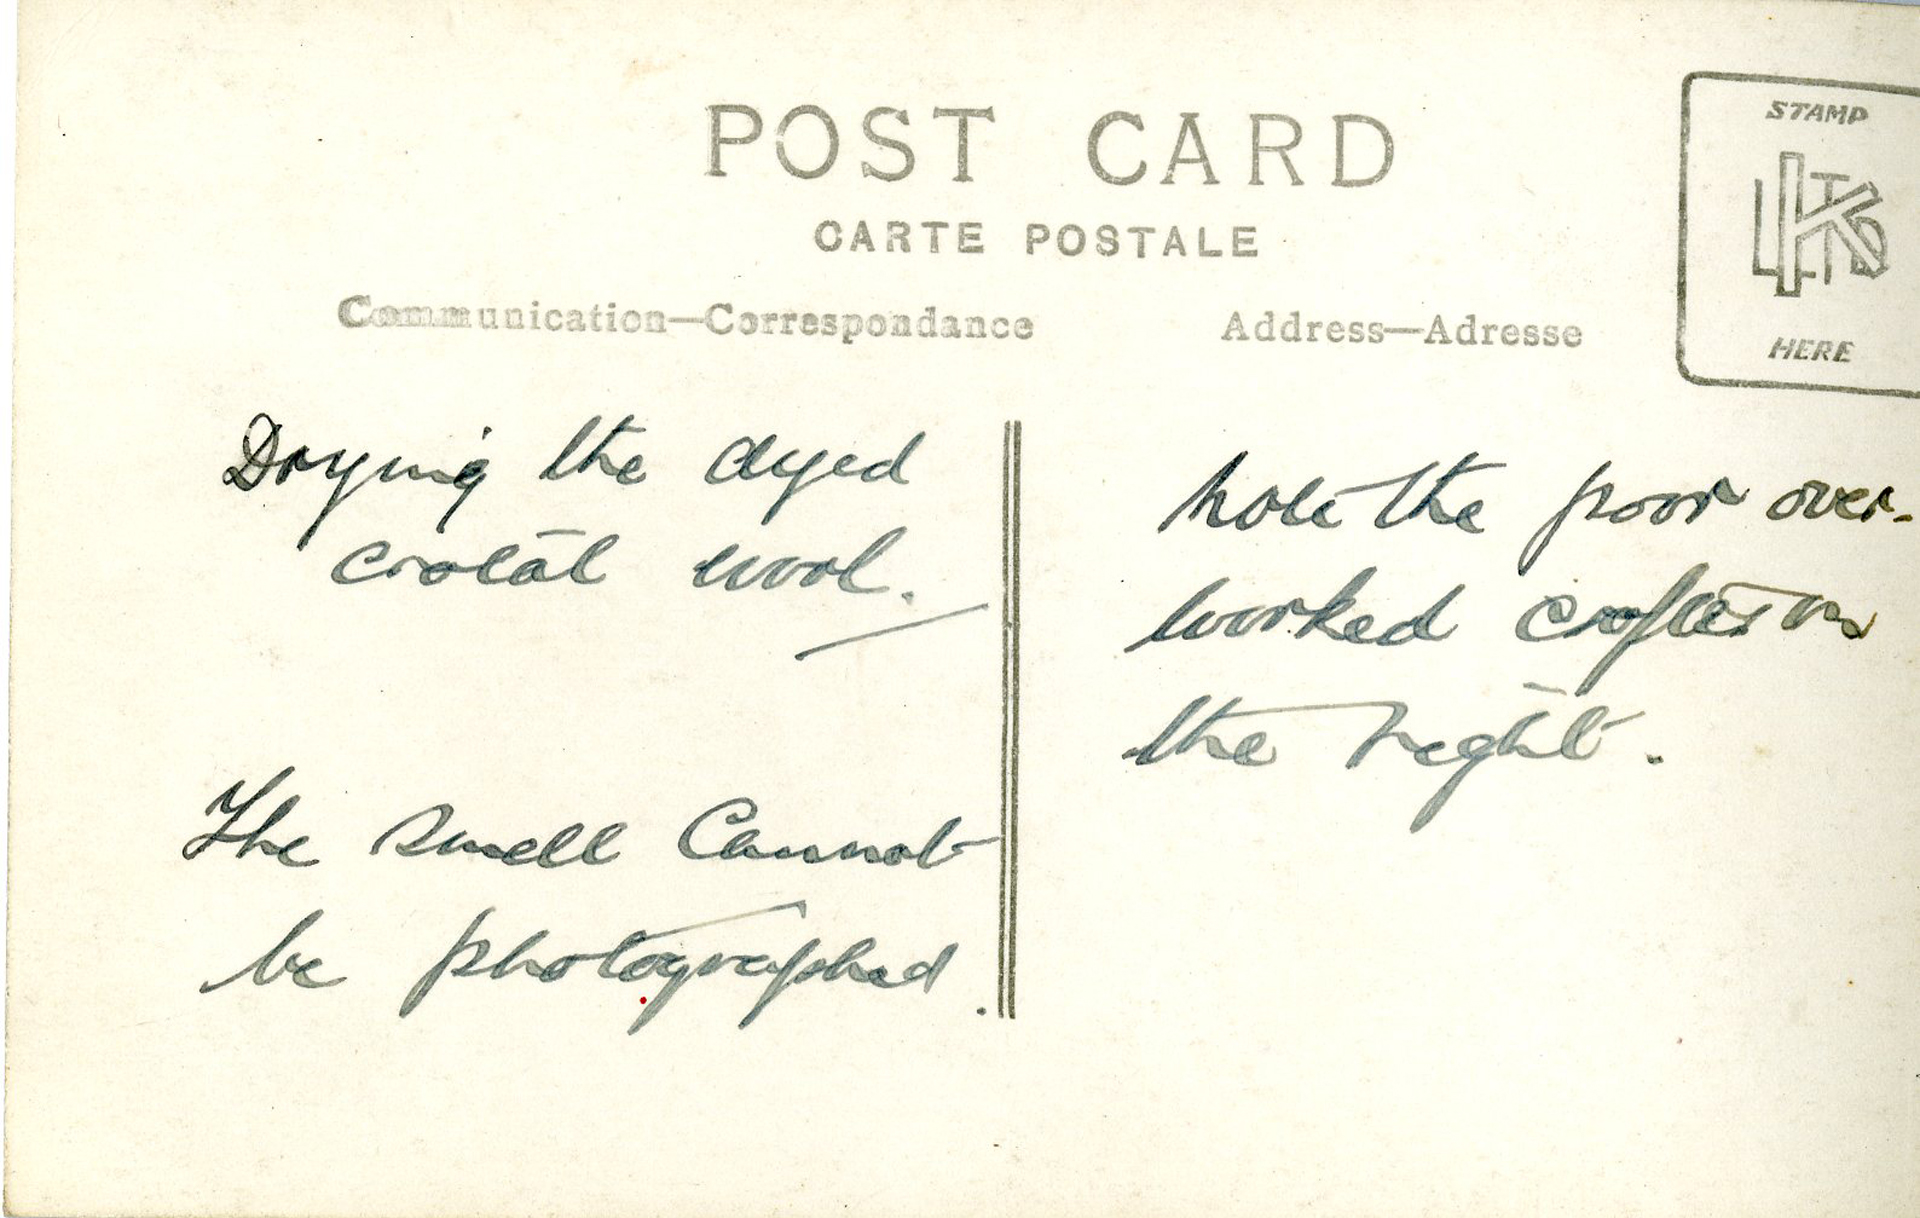 POST CARD
CARTE POSTALE
Communication—Correspondance
Address—Adresse
STAMP
K LTD
HERE
Drying the dyed
crotal wool.
The smell Cannot
be photographed.
Note the poor over-
worked crofter on
the right.